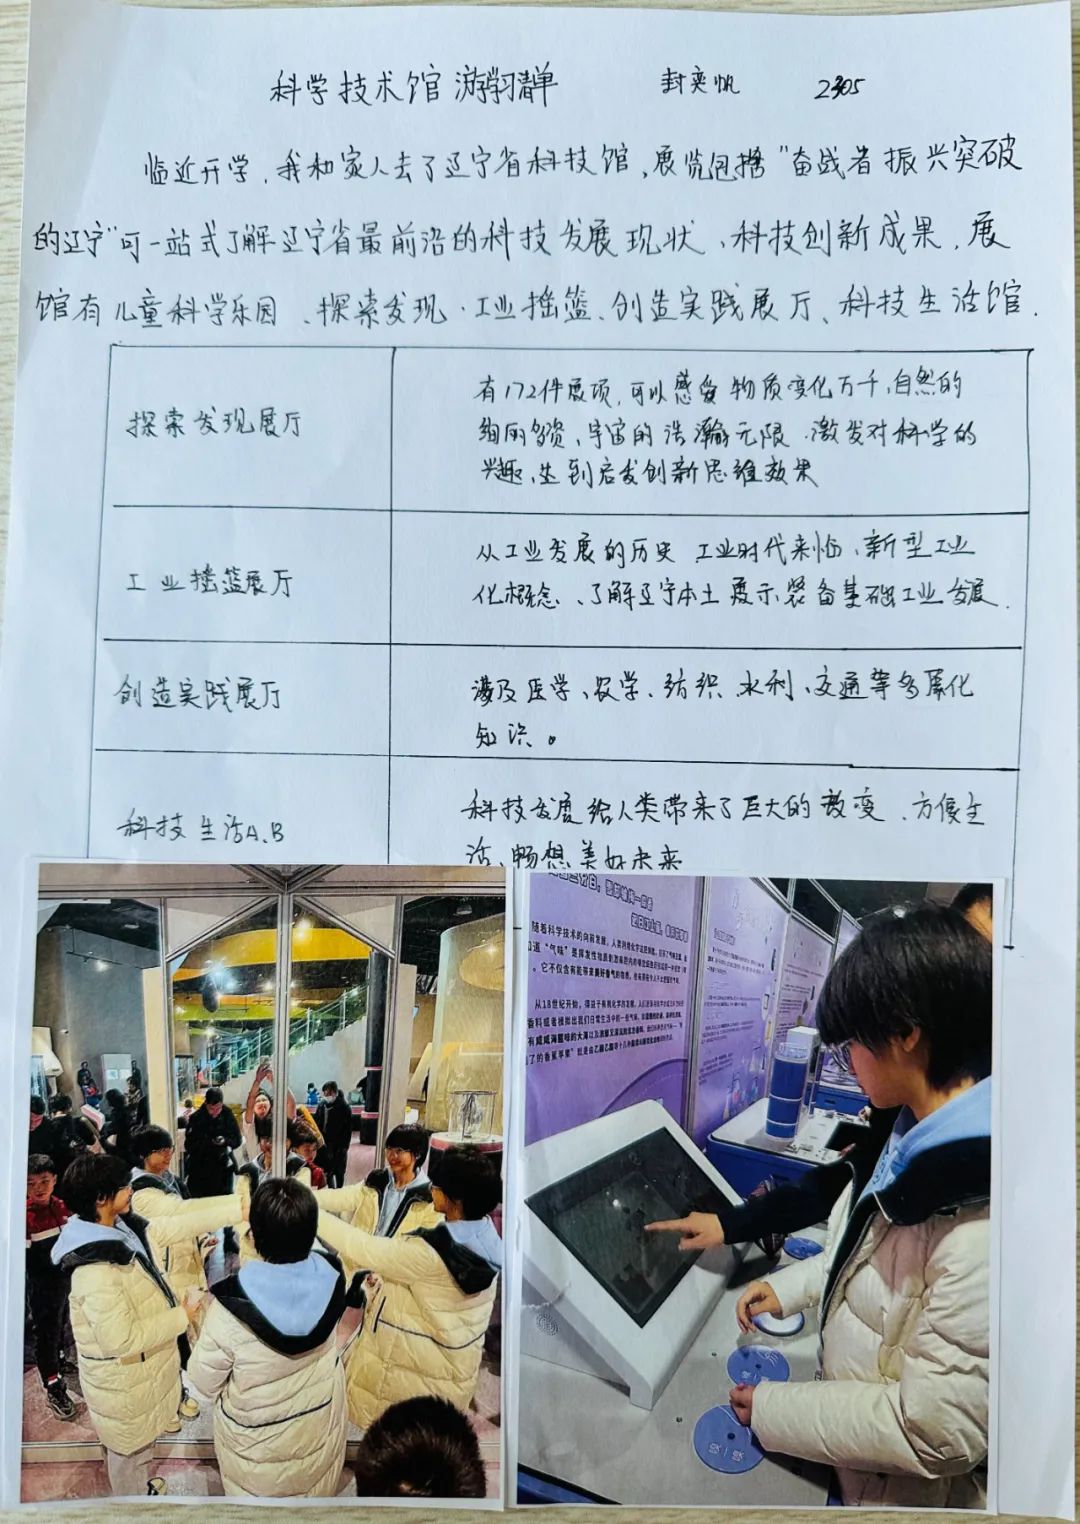 科学技术馆游学习清单 封奕帆 2305
临近开学,我和家人去了辽宁省科技馆,展览包括"奋战者振兴突破
的辽宁"可一站式了解辽宁省最前沿的科技发展现状、科技创新成果,展
馆有儿童科学乐园、探索发现、工业摇篮、创造实践展厅、科技生活馆.
探索发现展厅
有172件展项,可以感受物质变化万千,自然的
绚丽多姿、宇宙的浩瀚无限.激发对科学的
兴趣,达到启发创新思维效果
工业摇篮展厅
从工业发展的历史 工业时代来临、新型工业
化概念、了解辽宁本土展示装备基础工业发展.
创造实践展厅
涉及医学、农学、纺织、水利、交通等多属化
知识。
科技生活A、B
科技发展给人类带来了巨大的改变、方便生
活、畅想美好未来
随着科学技术的向前发展,人类
道"气味"是挥发性物质刺激鼻腔内的
从18世纪开始,得益于有机化学的发展,人们